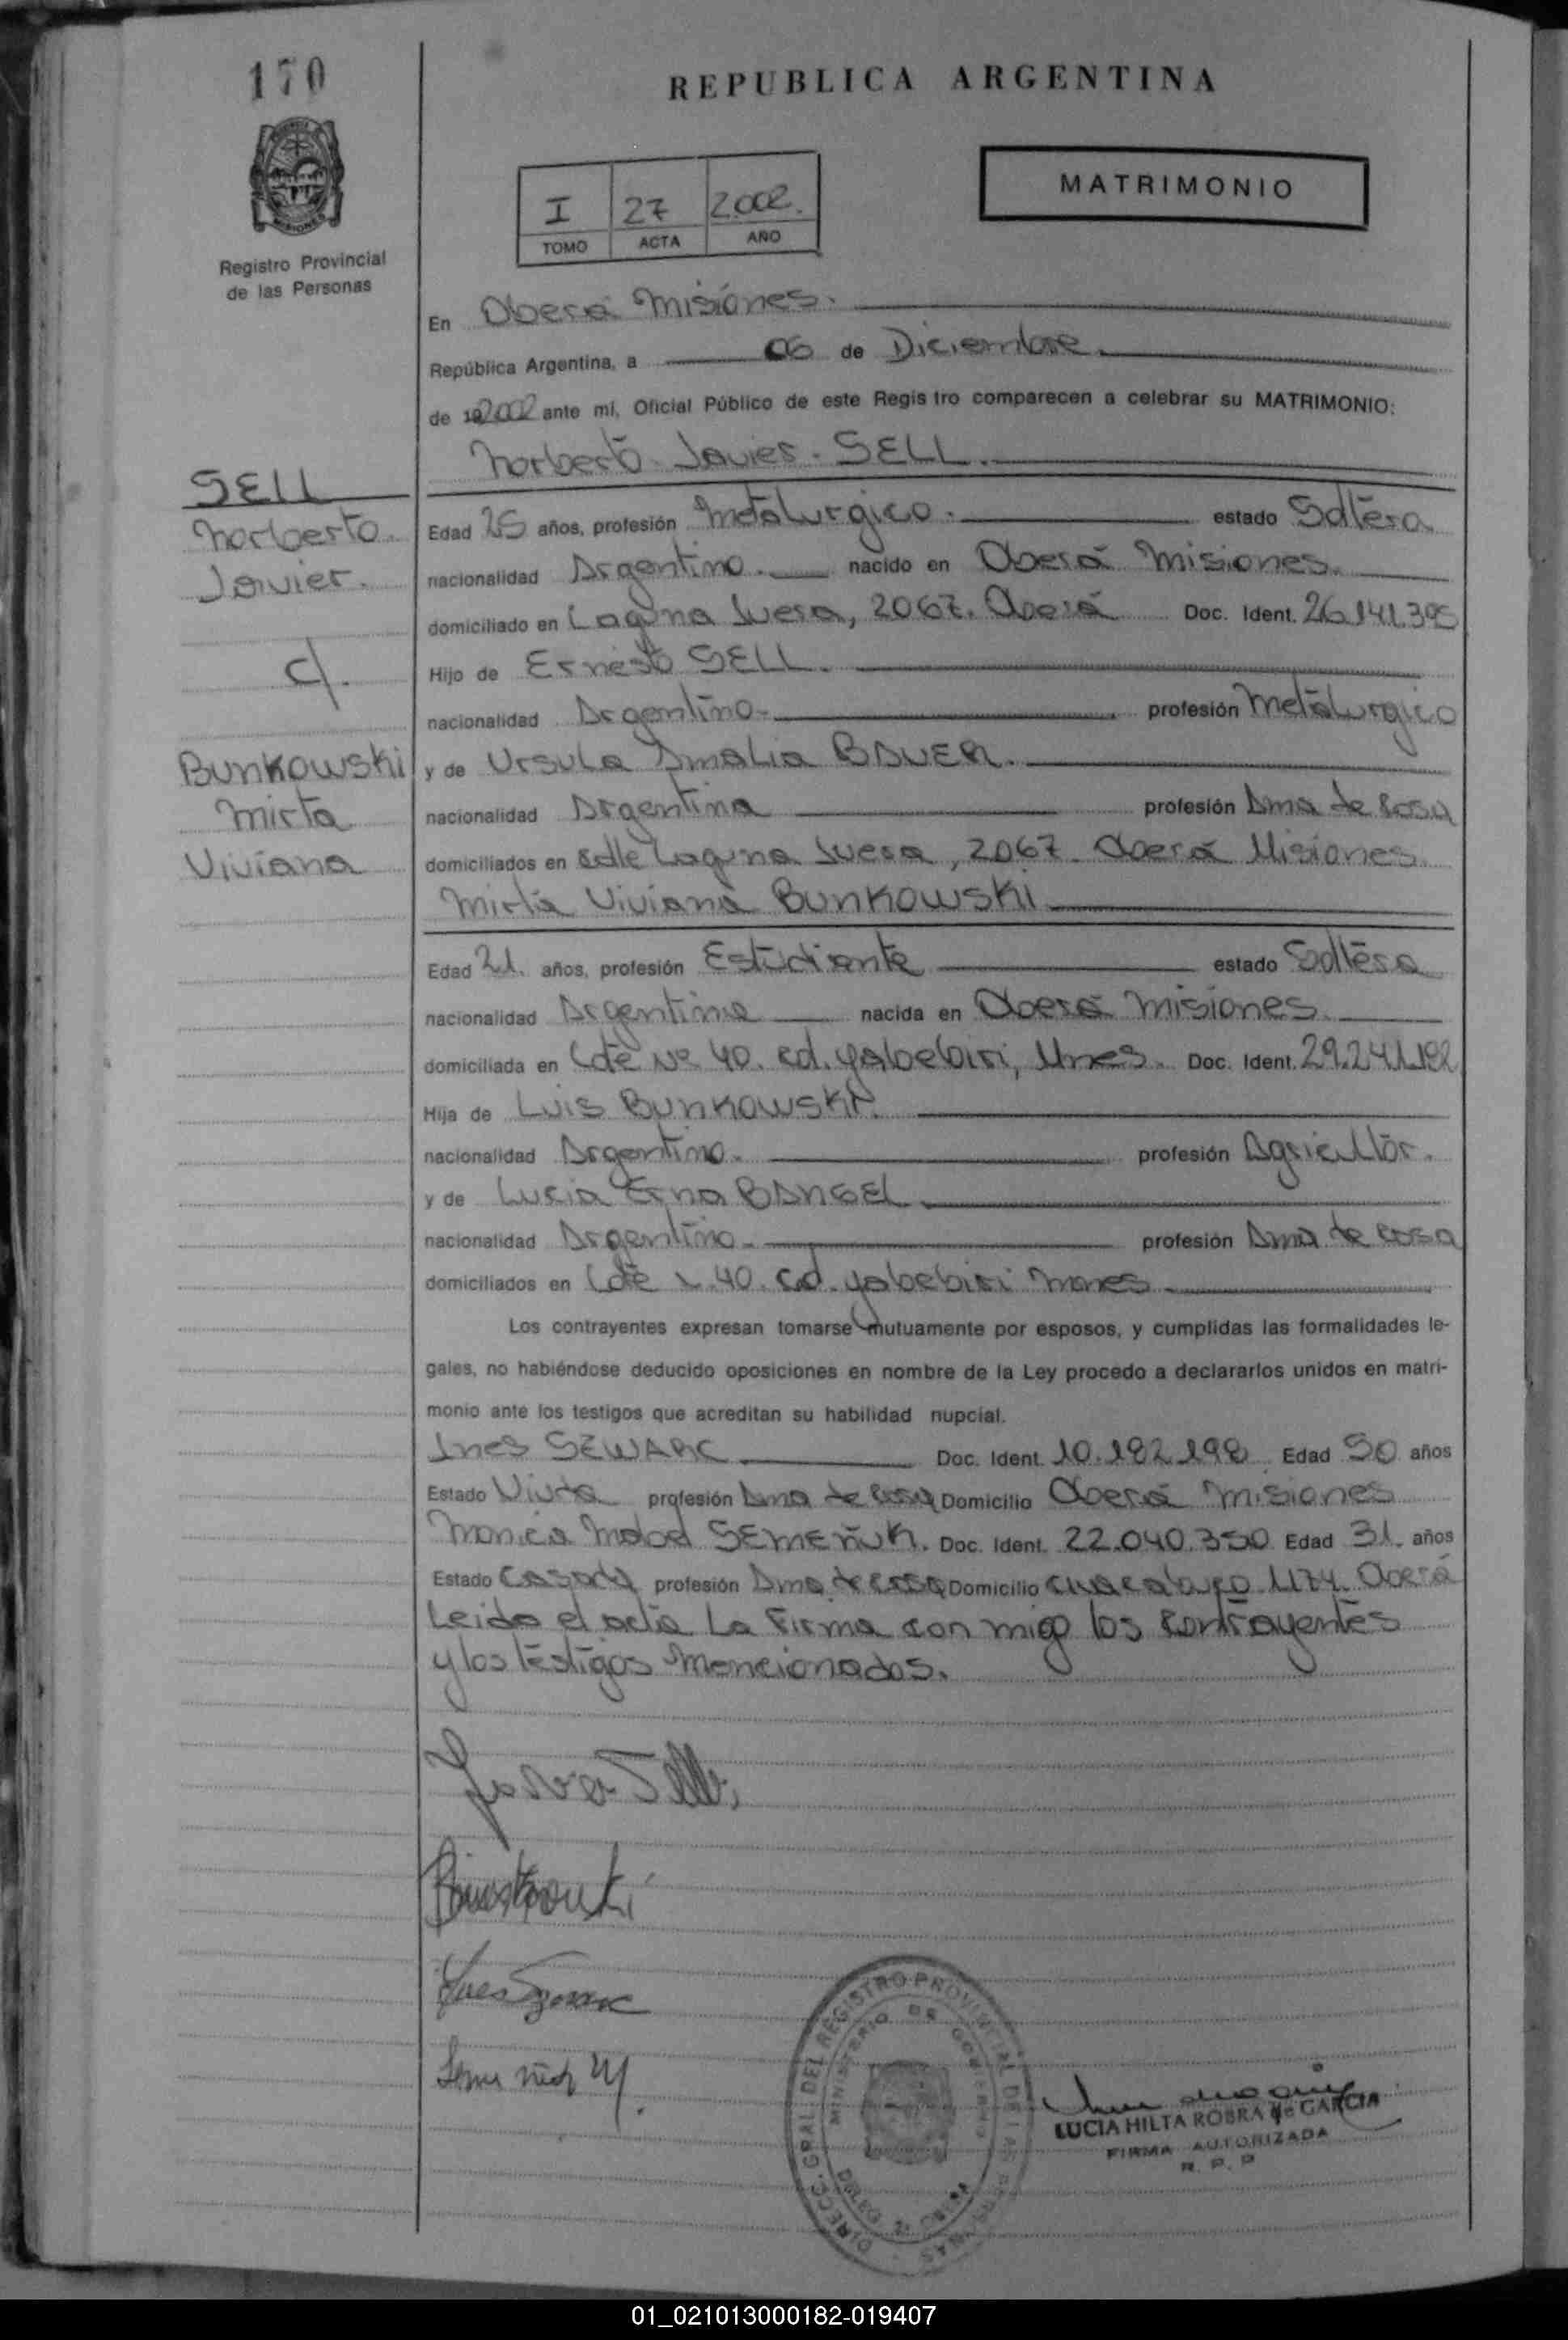 170
REPUBLICA ARGENTINA
MATRIMONIO
I 27 2.002.
TOMO ACTA AÑO
Registro Provincial
de las Personas
En Oberá Misiones.
República Argentina, a 06 de Diciembre.
de 2002 ante mí, Oficial Público de este Regis tro comparecen a celebrar su MATRIMONIO:
Norberto Javier SELL.
SELL
Norberto.
Javier.
c/.
Bunkowski
Mirta
Viviana
Edad 25 años, profesión Metalurgico. estado Soltera
nacionalidad Argentino. nacido en Oberá Misiones.
domiciliado en Laguna 2067. Oberá Doc. Ident. 26.141.395
Hijo de Ernesto SELL.
nacionalidad Argentino profesión Metalurgico
y de Ursula Amalia BAUER.
nacionalidad Argentina profesión Ama de Casa
domiciliados en Calle Laguna 2067. Oberá Misiones.
Mirta Viviana Bunkowski
Edad 21. años, profesión Estudiante estado Soltera
nacionalidad Argentina nacida en Oberá Misiones.
domiciliada en Lote Nº 40. Cd. Yabebiri, Mnes. Doc. Ident. 29.241.192
Hija de Luis Bunkowski.
nacionalidad Argentino. profesión Agricultor.
y de Lucia Erna BANGEL
nacionalidad Argentino profesión Ama de Casa
domiciliados en Lote 40. Cd. Yabebiri Mnes
Los contrayentes expresan tomarse mutuamente por esposos, y cumplidas las formalidades le-
gales, no habiéndose deducido oposiciones en nombre de la Ley procedo a declararlos unidos en matri-
monio ante los testigos que acreditan su habilidad nupcial.
Ines SEWARC Doc. Ident. 10.182.198 Edad 50 años
Estado Viuda profesión Ama de Casa Domicilio Oberá Misiones
Monica Mabel SEMEÑUK. Doc. Ident. 22.040.350 Edad 31. años
Estado Casada profesión Ama de Casa Domicilio Chacabuco 1174. Oberá
Leida el acta La Firma con migo los contrayentes
y los testigos mencionados.
Javier Sell
Bunkowski
LUCIA HILTA ROBRA de GARCIA
FIRMA AUTORIZADA
R. P. P
DIRECC. GRAL. DEL REGISTRO PROVINCIAL DE LAS PERSONAS
MINISTERIO DE GOBIERNO
01_021013000182-019407